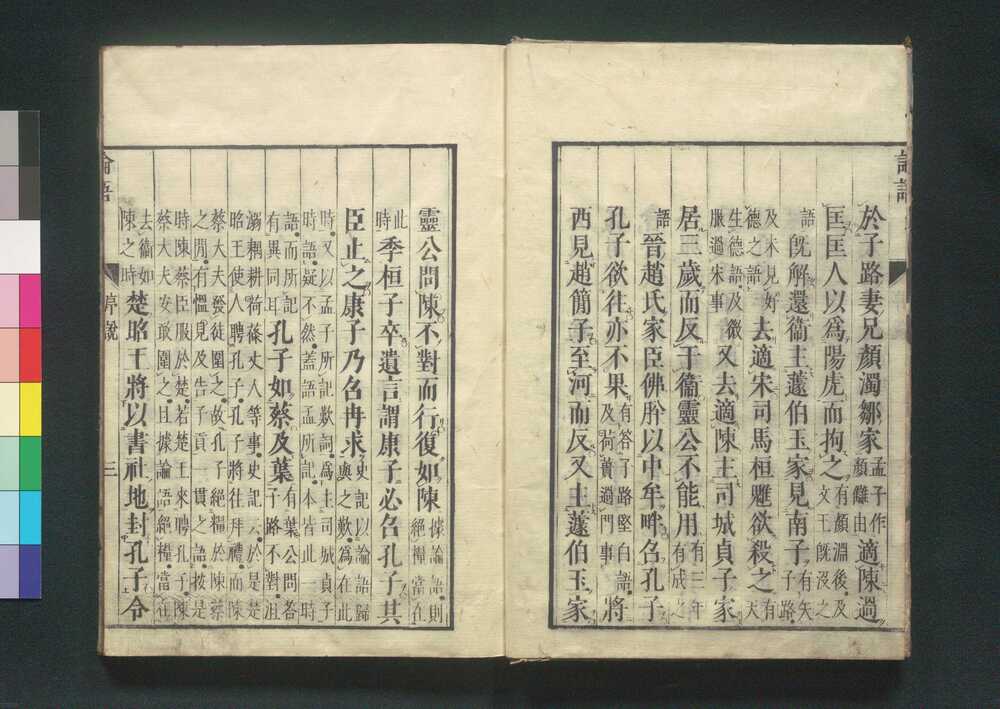 論語
於子路妻兄顏濁鄒家孟子作顏讎由適陳過
匡匡人以爲陽虎而拘之有顏淵後及文王旣沒之
語旣解還衞主蘧伯玉家見南子有矢子路
及未見好德之語去適宋司馬桓魋欲殺之有天
生德語及微服過宋事又去適陳主司城貞子家
居三歲而反于衞靈公不能用有三年有成之
語晉趙氏家臣佛肸以中牟畔召孔子
孔子欲往亦不果有答子路堅白語及荷蕢過門事將
西見趙簡子至河而反又主蘧伯玉家
靈公問陳不對而行復如陳據論語則絕糧當在
此時季桓子卒遺言謂康子必召孔子其
臣止之康子乃召冉求史記以論語歸與之歎爲在此
時又以孟子所記歎詞爲主司城貞子
時語疑不然蓋語孟所記本皆此一時
語而所記有異同耳孔子如蔡及葉有葉公問答子路不對沮
溺耦耕荷蓧丈人等事史記云於是楚
昭王使人聘孔子孔子將往拜禮而陳
蔡大夫發徒圍之故孔子絕糧於陳蔡
之間有慍見及告子貢一貫之語按是
時陳蔡臣服於楚若楚王來聘孔子陳
蔡大夫安敢圍之且據論語絕糧當在
去衞如陳之時楚昭王將以書社地封孔子令
論語
序說
三